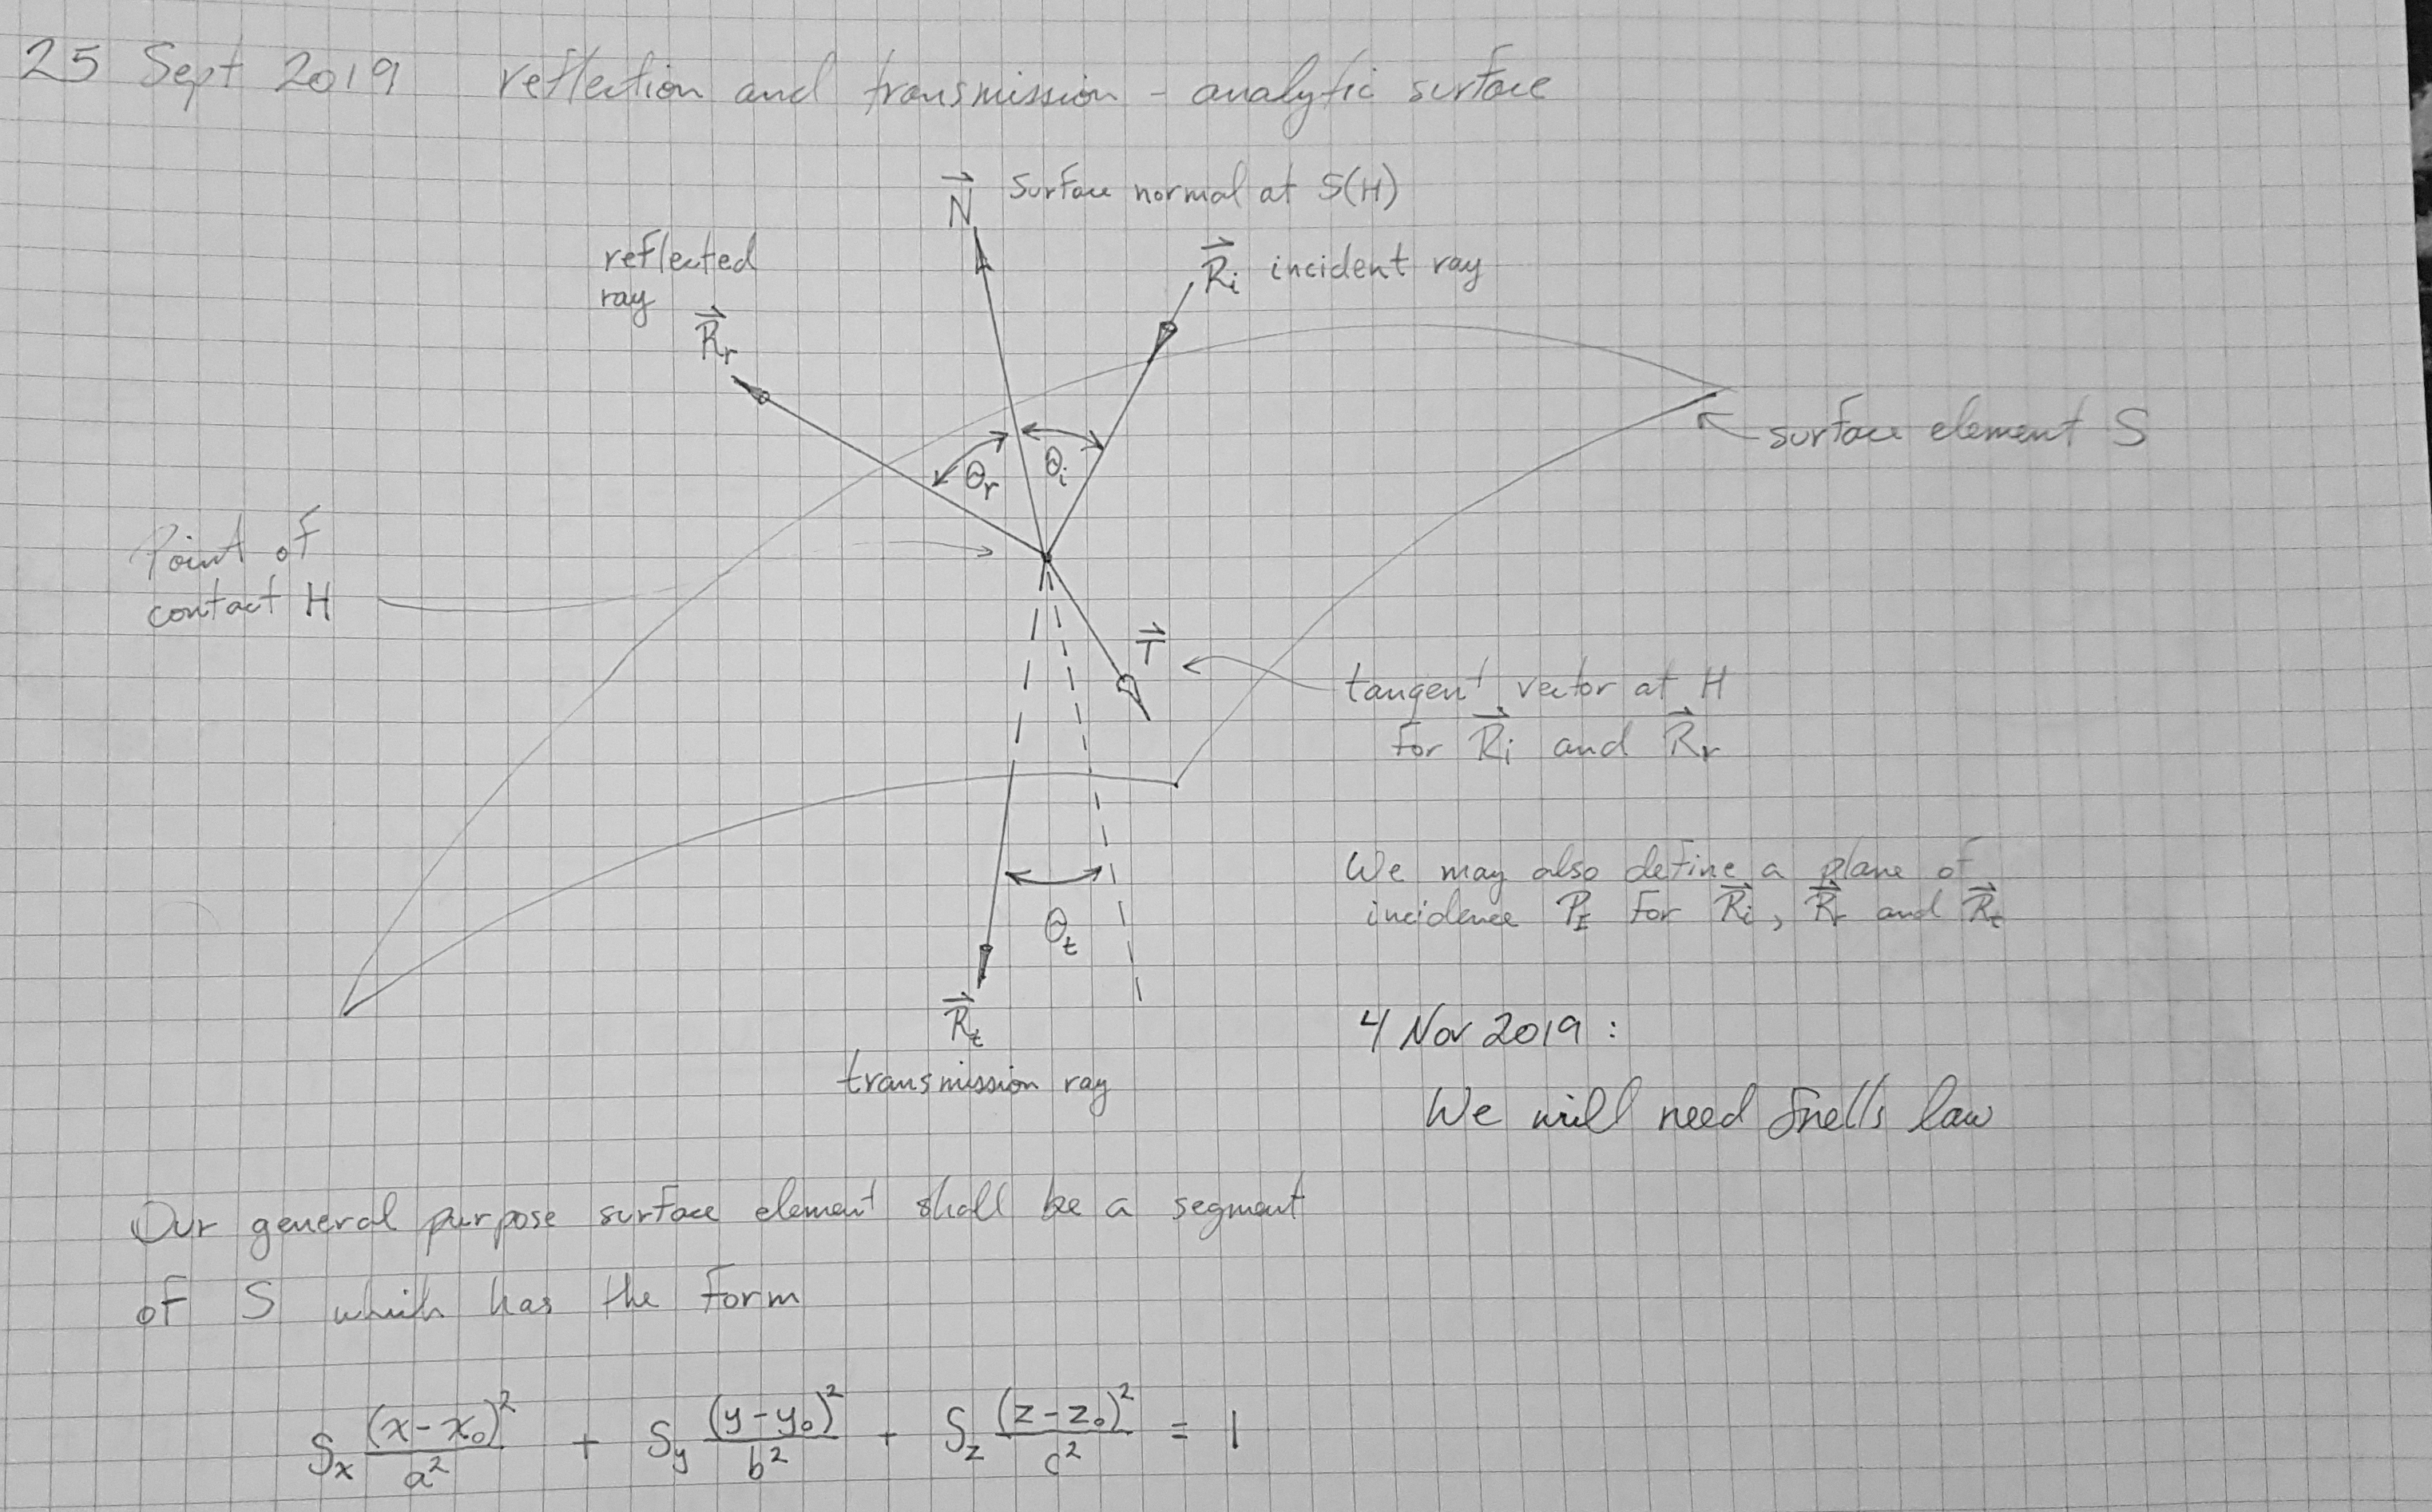 25 Sept 2019 reflection and transmission - analytic surface
N⃗ Surface normal at S(H)
reflected
ray
R⃗r
R⃗i incident ray
surface element S
θr θi
Point of
contact H
T⃗
tangent vector at H
for R⃗i and R⃗r
We may also define a plane of
incidence PI for R⃗i, R⃗r and R⃗t
θt
R⃗t
transmission ray
4 Nov 2019 :
We will need Snells law
Our general purpose surface element shall be a segment
of S which has the form
Sx (x-x₀)²/a² + Sy (y-y₀)²/b² + Sz (z-z₀)²/c² = 1